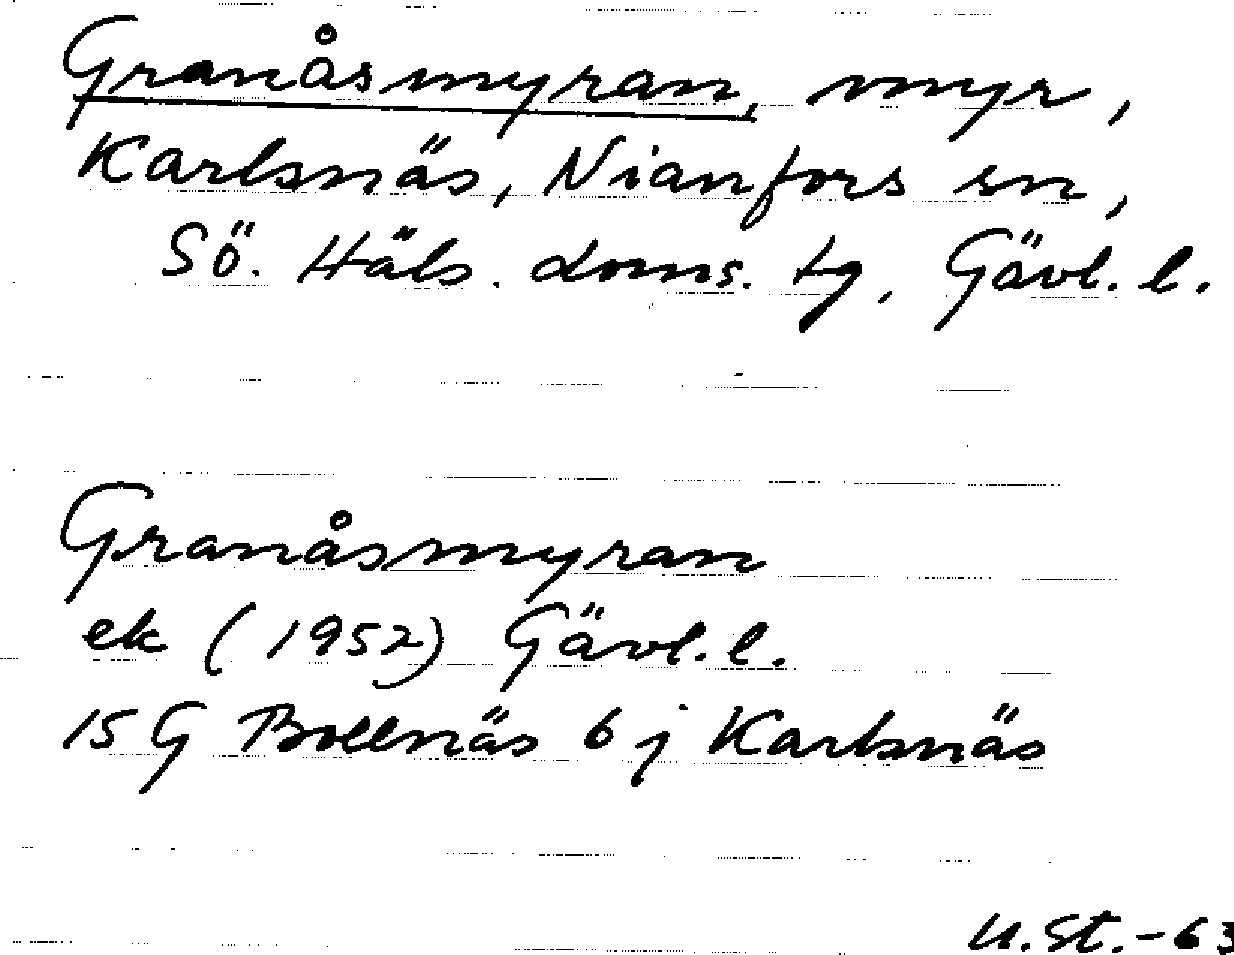 Granåsmyran, myr,
Karlsnäs, Nianfors sn,
Sö. Häls. doms. tg, Gävl. l.
Granåsmyran
ek (1952) Gävl. l.
15 G Bollnäs 6 j Karlsnäs
U. St. -63